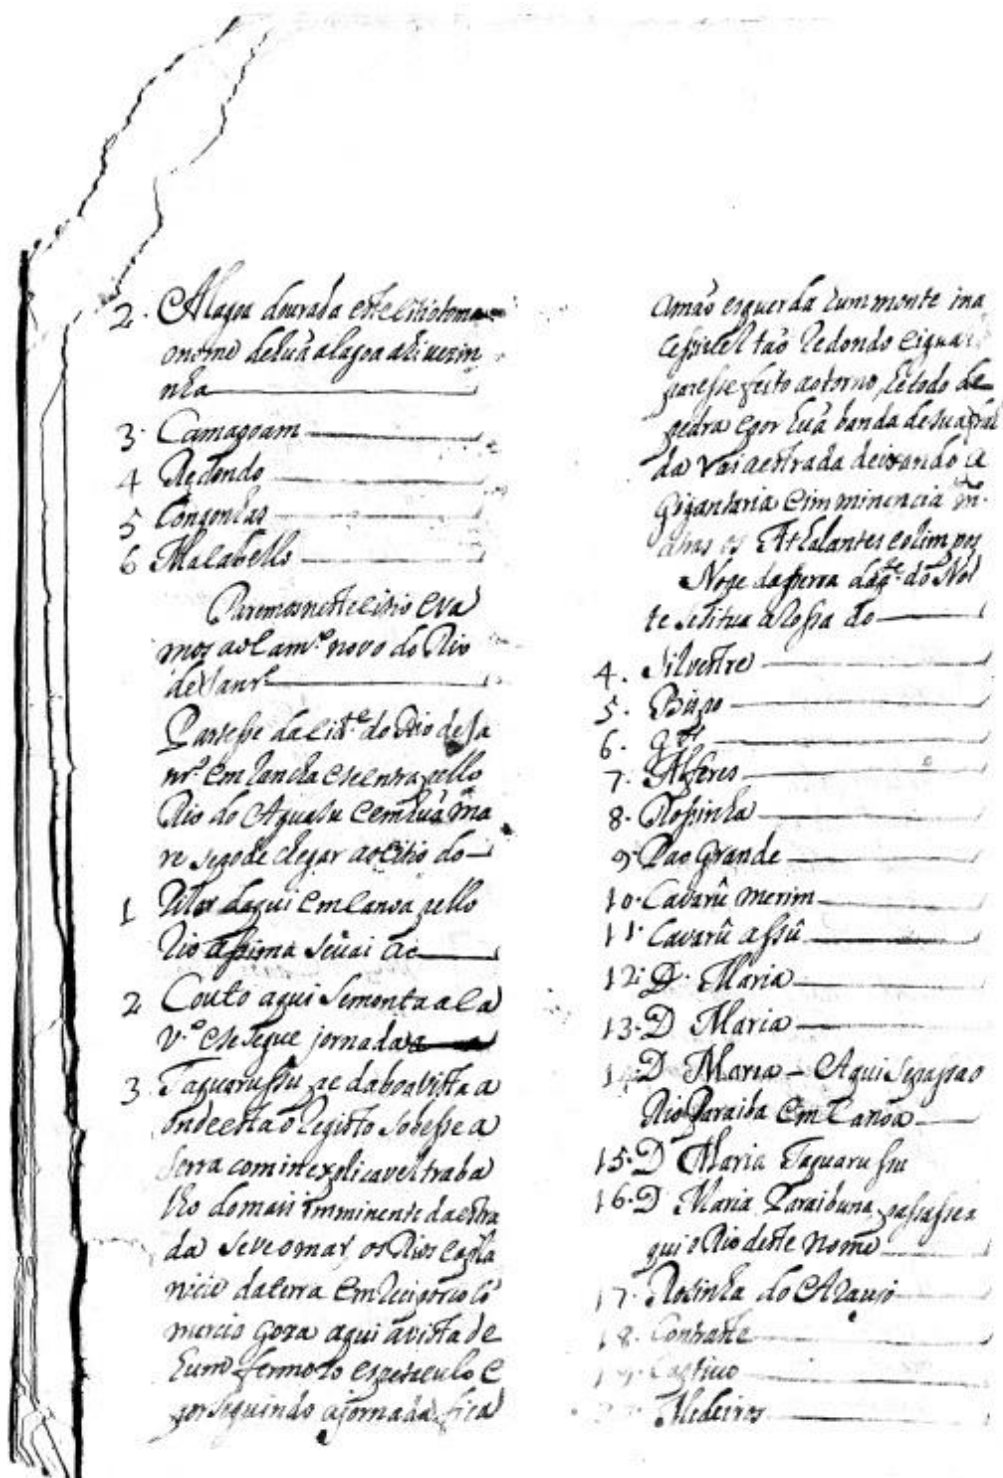 2. Alagoa dourada este citio toma
o nome de huã alagoa ahi vezin
nha
3. Camapoam
4 Redondo
5 Congonhas
6 Macabello
Paremos neste citio e va
mos ao cam.º novo do Rio
de Janr.º
Partesse da cid.e do Rio de Ja
nr.º em lancha e se entra pello
Rio do Aguasu e em huã ma
re se pode chegar ao citio do
1 Pilar daqui em canoa pello
Rio assima se vai ao
2 Couto aqui se monta a ca
v.º e se segue jornada
3 Taquarussu pe da boa vista a
onde esta o Registo sobesse a
serra com inexplicavel traba
lho do mais imminente da estra
da se ve o mar, os Rios e a pla
nicie da terra em reciproco co
mercio goza aqui a vista de
hum fermozo espetaculo e
porseguindo a jornada fica
a mão esquerda hum monte ina
cessivel tão redondo e igual
paresse feito ao torno, he todo de
pedra e por huã banda de sua fral
da vai a estrada deixando a
Gigantaria e imminencia
atras os Athalantes e olimpos
No pe da serra da p.te do Nor
te se situa a Rossa do
4. Silvestre
5. Bispo
6. G.or
7. Alferes
8. Rossinha
9. Pao Grande
10. Cavarû merim
11. Cavarû assû
12. D. Maria
13. D Maria
14. D Maria - Aqui se passa o
Rio Paraiba em Canoa
15. D Maria Taquarussu
16. D Maria Paraibuna, passasse a
qui o Rio deste nome
17. Rosinha do Araujo
18. Contraste
19. Cativo
20. Medeiros